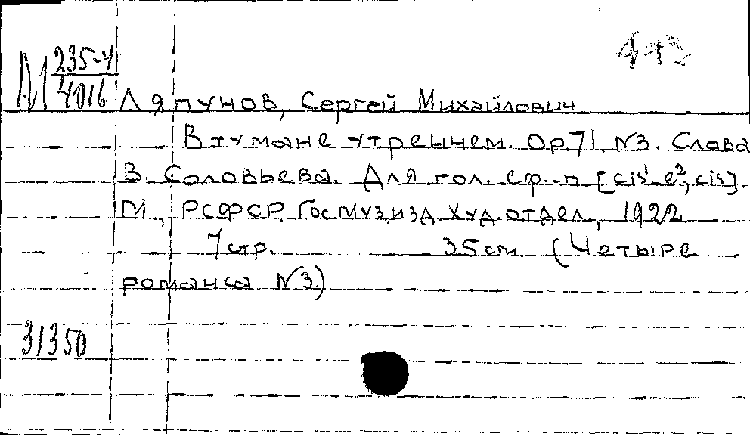 М 235-4
4016
Ляпунов, Сергей Михайлович
В тумане утреннем. Op. 71, №3. Слова
В. Соловьева. Для гол. с ф.-п. [cis¹-e², cis].
М., РСФСР, Гос муз. изд. Худ. отдел, 1922
7 стр. 35 см. (Четыре
романса №3)
31350